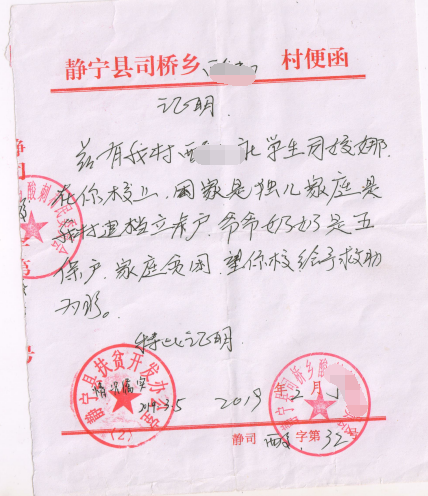 静宁县司桥乡 村便函
证明
兹有我村 社学生司姣娜
在你校上 因家是独儿家庭是
我村建档立卡户.爷爷奶奶是五
保户.家庭贫困.望你校给予救助
为盼。
特此证明
静宁县扶贫开发办公室
情况属实
2019.3.5
(2)
2019 2月
静宁县司桥乡
静司 字第 32 号